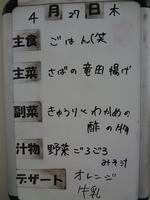 4月27日木
主食 ごはん(笑
主菜 さばの竜田揚げ
副菜 きゅうりとわかめの
酢の物
汁物 野菜ごろごろ
みそ汁
デザート オレンジ
牛乳